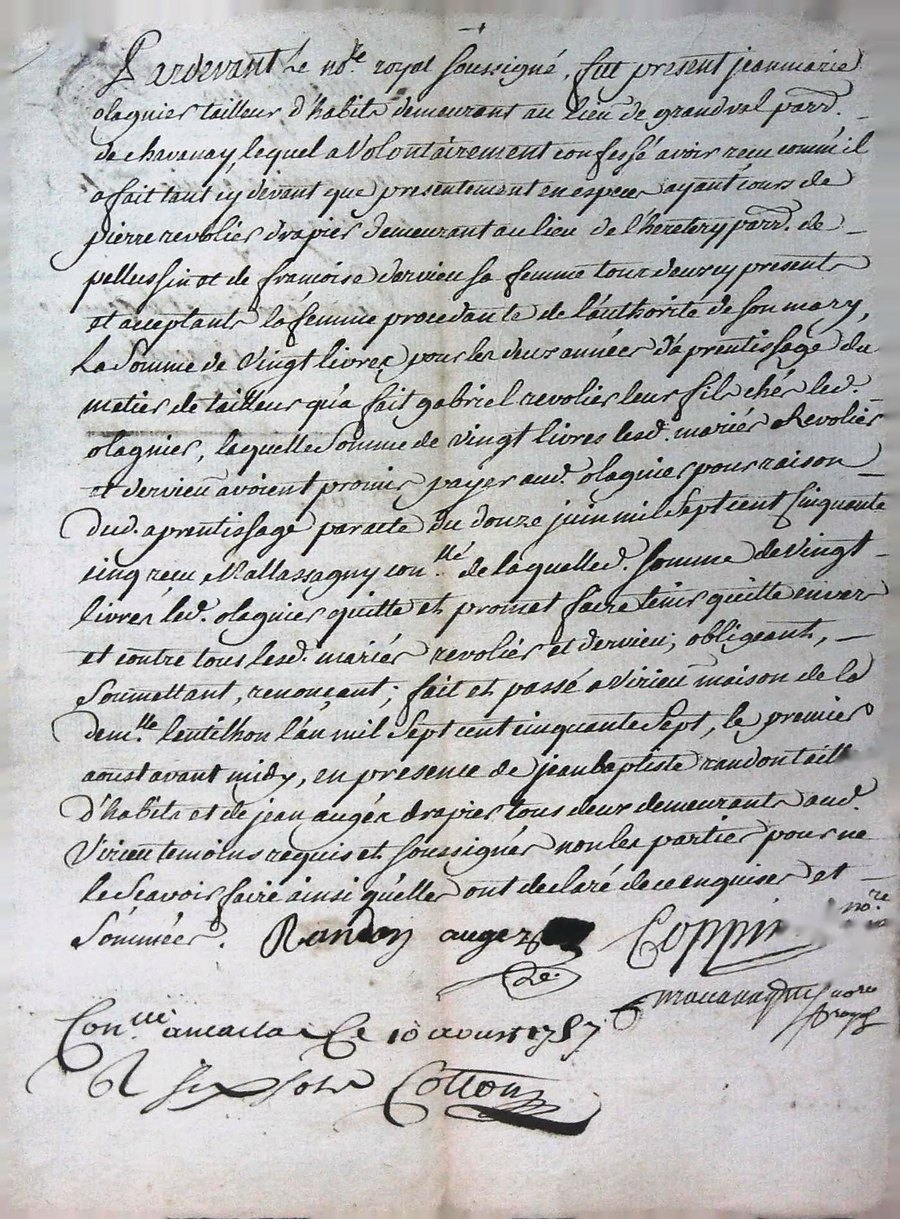 Pardevant Le no.re royal soussigné, fut present jeanmarie
olagnier tailleur d'habits demeurant au lieu de grandval parr.
de chavanay, lequel a Volontairement confessé avoir recu comm'il
a fait tant cy devant que presentement en especes ayant cours de
pierre revolier drapier demeurant au lieu de l'heretery parr. de
pellussin et de francoise dervieu sa femme tout deux cy presents
et acceptants la femme procedante de l'authorité de son mary,
La Somme de Vingt livres pour les deux années d'aprentissage du
metier de tailleur qu'a fait gabriel revolier leur fils chés led.
olagnier, laquelle Somme de vingt livres lesd. mariés Revolier
et dervieu avoient promis payer aud. olagnier pour raison
dud. aprentissage par acte du douze juin mil Sept cent Cinquante
cinq recu M.e allassagny con.llé de laquelle d. Somme de Vingt
livres led. olagnier quitte et promet faire tenir quitte envers
et contre tous lesd. mariés revolier et dervieu; obligeant,
Soumettant, renonçant; fait et passé a Virieu maison de la
dem.lle lentilhon l'an mil Sept cent cinquante Sept, le premier
aoust avant midy, en presence de jean baptiste randon taill
d'habits et de jean augér drapier tous deux demeurants aud.
Virieu temoins requis et soussignés non les parties pour ne
le Scavoir faire ainsi qu'elles ont declaré de ce enquises et
Sommées. Randon auger Coppin no.re
no.re royal
Con.llé a Ce 10 aoust 1757
R six sols Cotton